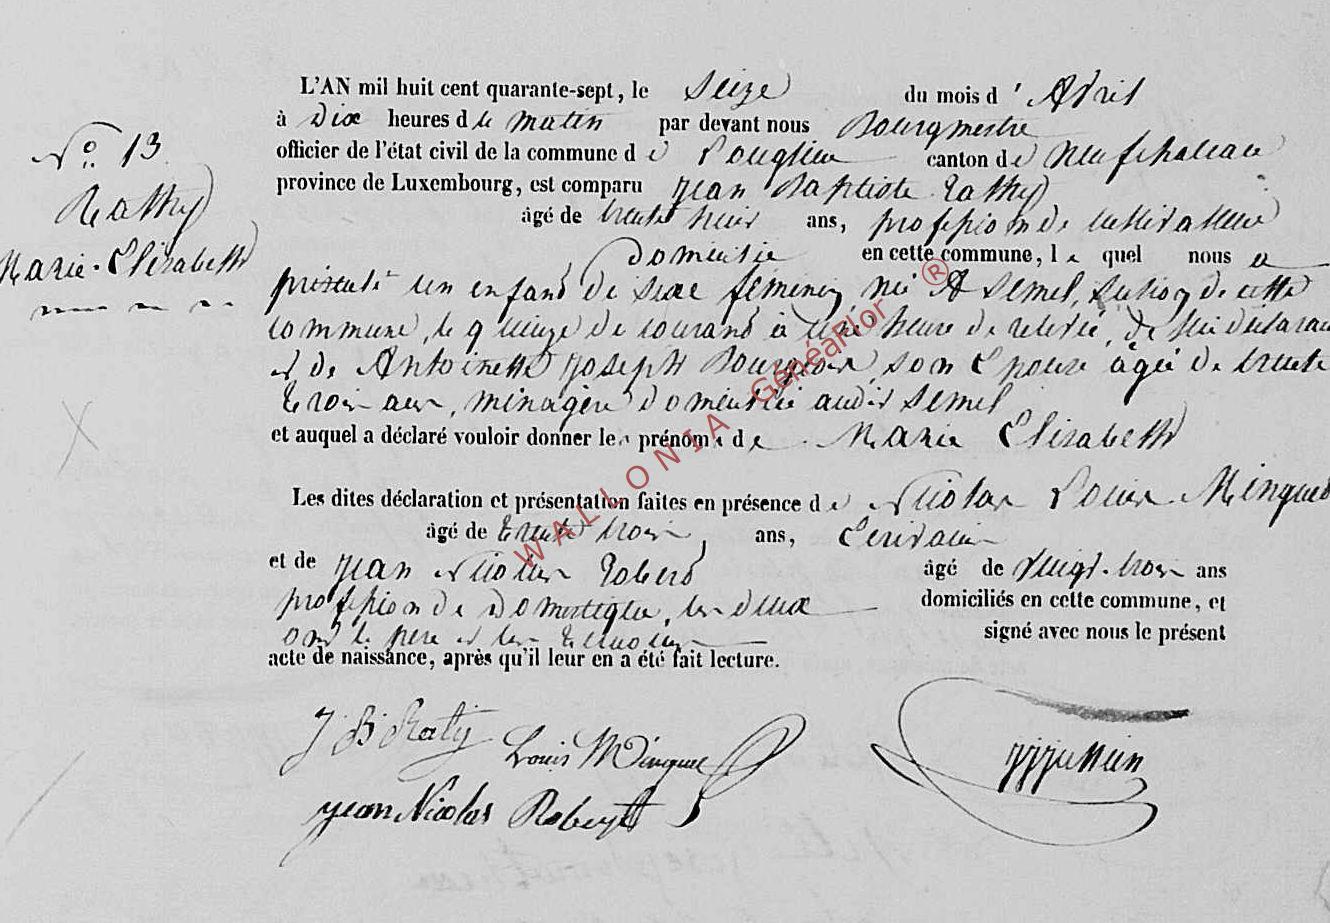 N° 13
Rathy
Marie-Elisabeth
L'AN mil huit cent quarante-sept, le seize du mois d'Avril
à Dix heures du matin par devant nous Bourgmestre
officier de l'état civil de la commune de Longlier canton de Neufchateau
province de Luxembourg, est comparu Jean Baptiste Rathy
âgé de trente huit ans, profession de cultivateur
domicilié en cette commune, le quel nous a
présenté un enfant de sexe féminin, né A semel, section de cette
commune, le quinze de courant à une heure de relevée, de lui déclarant
et de Antoinette Joseph Bourgeois, son Epouse âgée de trente
trois ans, ménagère domiciliée audit semel
et auquel a déclaré vouloir donner les prénoms de Marie Elisabeth
Les dites déclaration et présentation faites en présence de Nicolas Louis Minguet
âgé de trente trois, ans, Ecrivain
et de Jean Nicolas Robert âgé de vingt-trois ans
profession de Domestique, les deux domiciliés en cette commune, et
ont le père et les témoins signé avec nous le présent
acte de naissance, après qu'il leur en a été fait lecture.
J B Raty
Louis Minguet
Jean Nicolas Robert
WALLONIA GénéaFlor ®